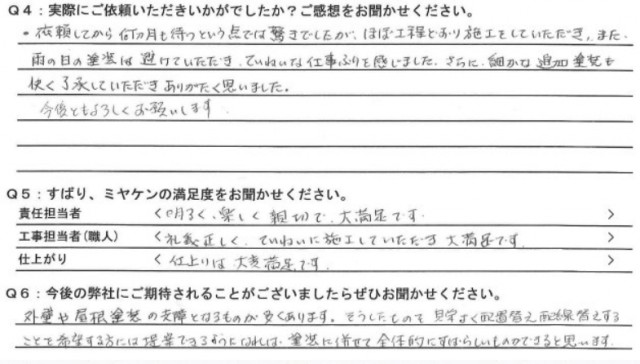 Q4：実際にご依頼いただきいかがでしたか？ご感想をお聞かせください。
・依頼してから何ヵ月も待つという点では驚きでしたが、ほぼ工程どおり施工をしていただき、また
雨の日の塗装は避けていただき、ていねいな仕事ぶりを感じました。さらに、細かな追加塗装も
快く了承していただきありがたく思いました。
今後ともよろしくお願いします
Q5：ずばり、ミヤケンの満足度をお聞かせください。
責任担当者 ＜ 明るく、楽しく 親切で、大満足です. ＞
工事担当者(職人) ＜ 礼義正しく、ていねいに施工していただき 大満足です. ＞
仕上がり ＜ 仕上りは 大変満足です. ＞
Q6：今後の弊社にご期待されることがございましたらぜひお聞かせください。
外壁や屋根塗装の支障となるものが多くあります。そうしたものを 見栄よく配置替え
ことを希望する方には提案できるようになれば、塗装に併せて全体的にすばらしいものができると思います.